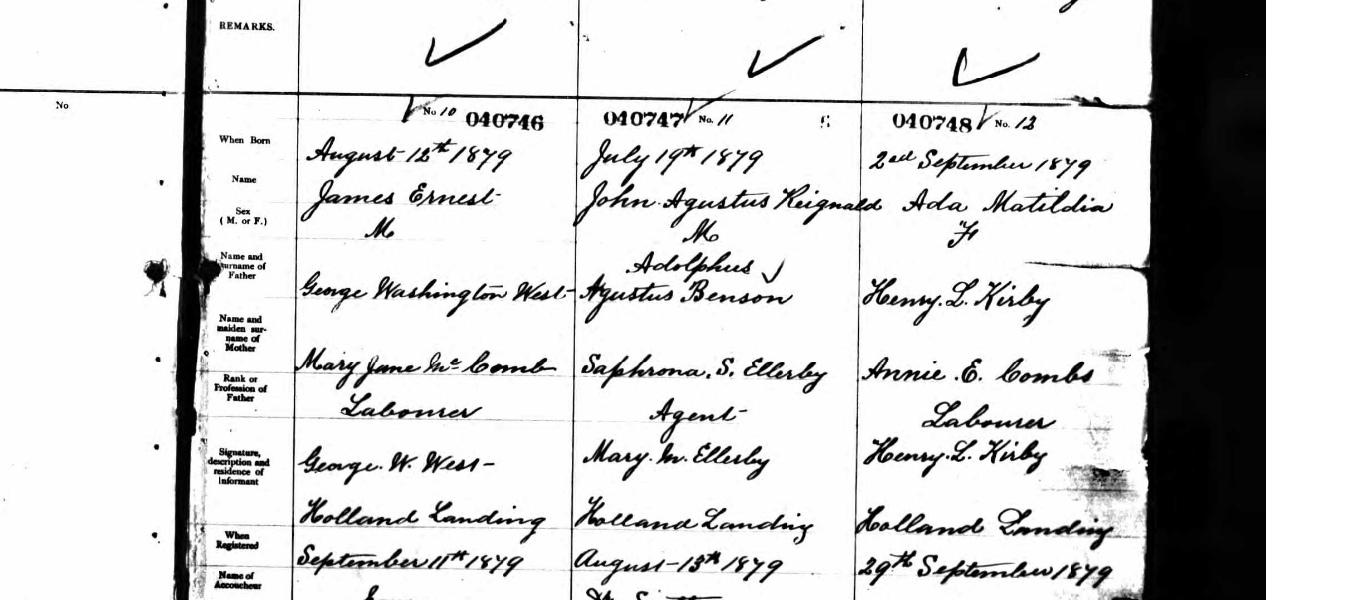 REMARKS.
No
No 10 040746 040747 No. 11 040748 No. 12
When Born August 12th 1879 July 19th 1879 2nd September 1879
Name James Ernest John Agustus Reignald Ada Matildia
Sex
( M. or F.) M M F
Name and
surname of
Father Adolphus
George Washington West Agustus Benson Henry. L. Kirby
Name and
maiden sur-
name of
Mother
Mary Jane Mc Comb Saphrona. S. Ellerby Annie. E. Combs
Rank or
Profession of
Father Labourer Agent Labourer
Signature,
description and
residence of
informant George. W. West Mary. M. Ellerby Henry. L. Kirby
Holland Landing Holland Landing Holland Landing
When
Registered September 11th 1879 August 13th 1879 29th September 1879
Name of
Accoucheur